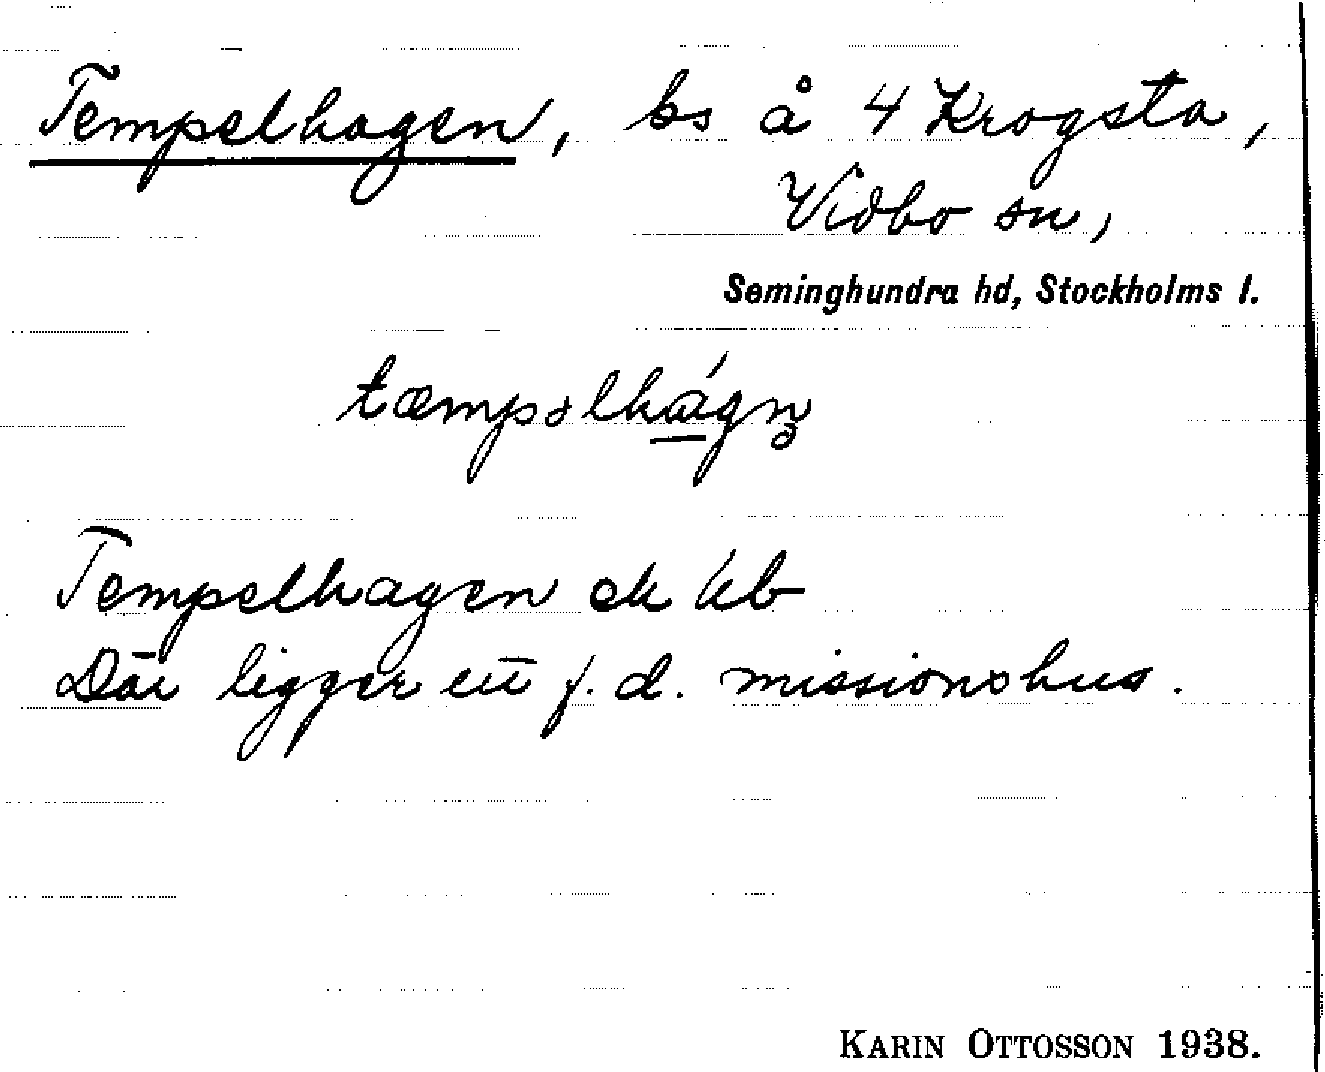 Tempelhagen, bs å 4 Krogsta,
Vidbo sn,
Seminghundra hd, Stockholms l.
tæmpəlhágn̥
Tempelhagen ek kb
Där ligger ett f. d. missionshus.
KARIN OTTOSSON 1938.